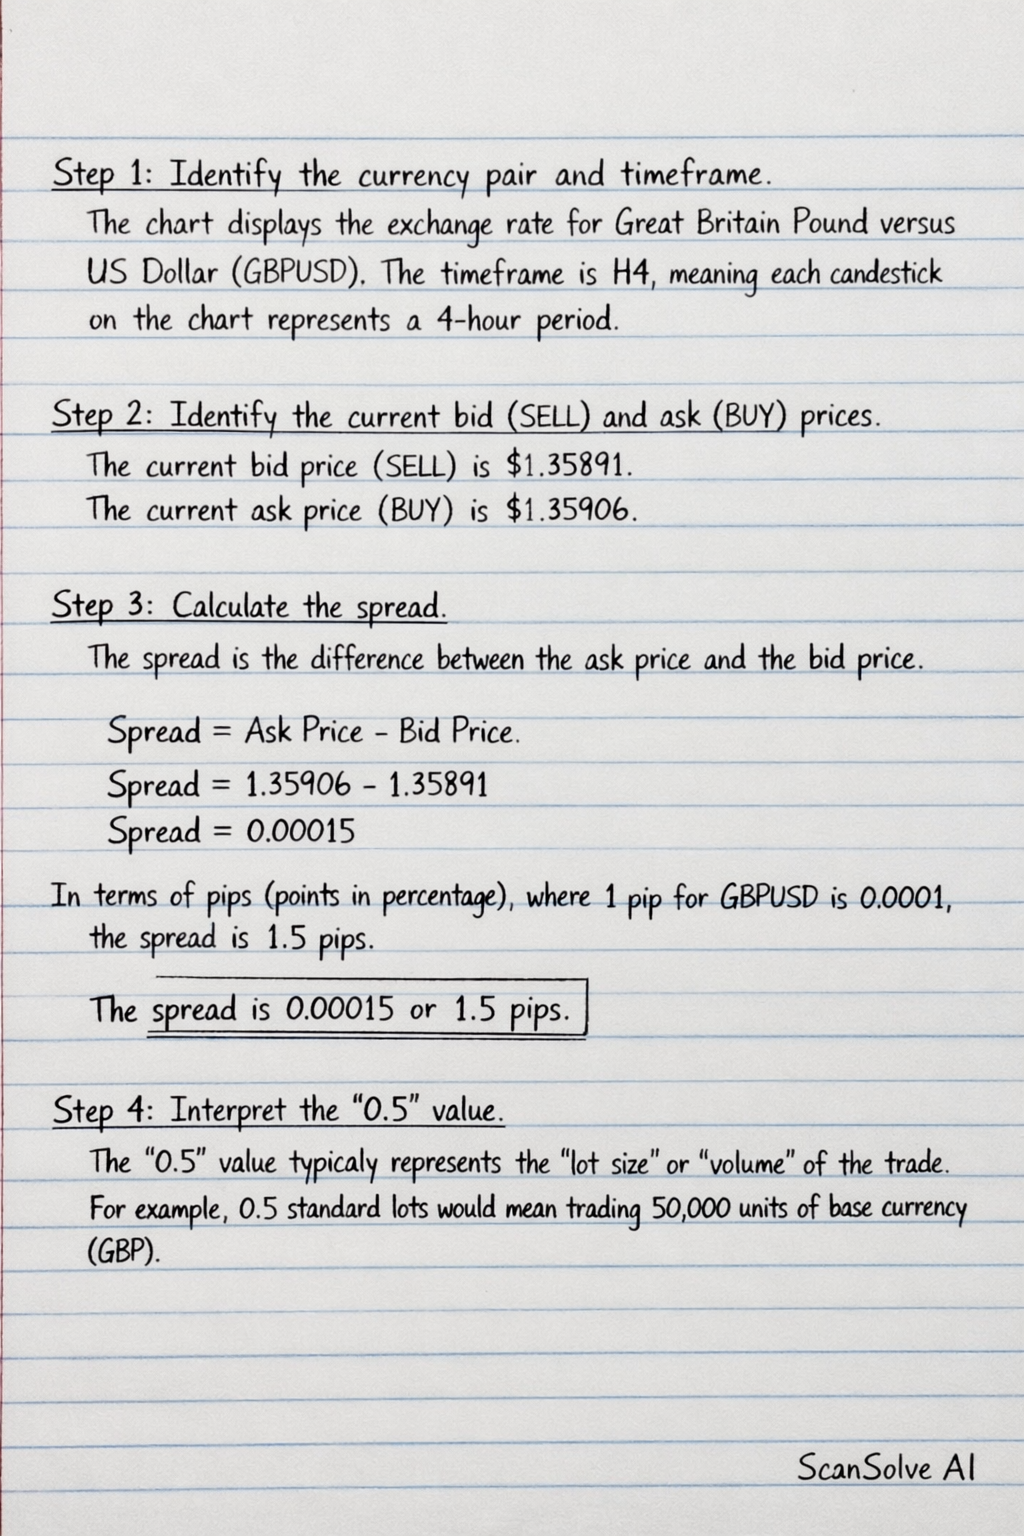 Step 1: Identify the currency pair and timeframe.
The chart displays the exchange rate for Great Britain Pound versus
US Dollar (GBPUSD). The timeframe is H4, meaning each candestick
on the chart represents a 4-hour period.
Step 2: Identify the current bid (SELL) and ask (BUY) prices.
The current bid price (SELL) is $1.35891.
The current ask price (BUY) is $1.35906.
Step 3: Calculate the spread.
The spread is the difference between the ask price and the bid price.
Spread = Ask Price - Bid Price.
Spread = 1.35906 - 1.35891
Spread = 0.00015
In terms of pips (points in percentage), where 1 pip for GBPUSD is 0.0001,
the spread is 1.5 pips.
The spread is 0.00015 or 1.5 pips.
Step 4: Interpret the “0.5” value.
The “0.5” value typicaly represents the “lot size” or “volume” of the trade.
For example, 0.5 standard lots would mean trading 50,000 units of base currency
(GBP).
ScanSolve AI